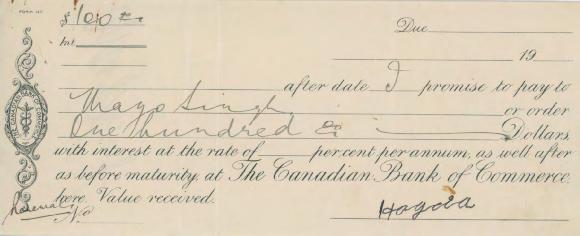 $ 100 00
Due
Int.
19
after date I promise to pay to
Mayo Singh
or order
One hundred 00 Dollars
with interest at the rate of per cent per annum, as well after
as before maturity at The Canadian Bank of Commerce
here. Value received.
Renewal No.